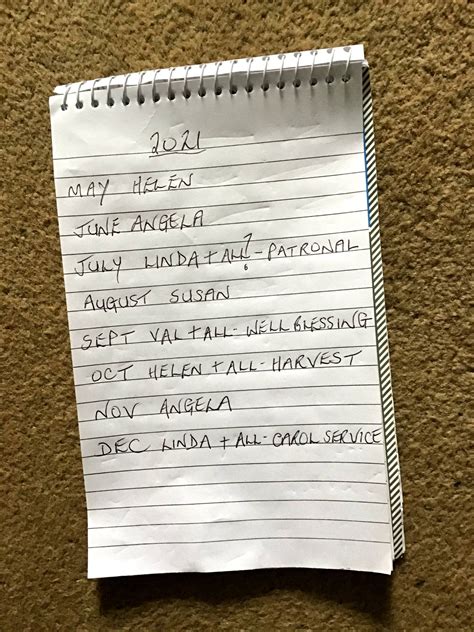 2021
MAY HELEN
JUNE ANGELA
JULY LINDA + ALL? - PATRONAL
AUGUST SUSAN
SEPT VAL + ALL - WELL BLESSING
OCT HELEN + ALL - HARVEST
NOV ANGELA
DEC LINDA + ALL - CAROL SERVICE